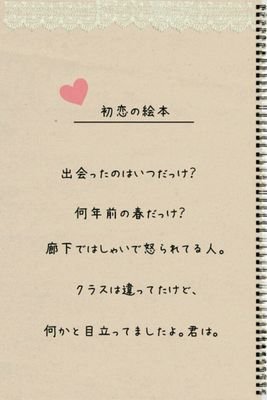 初恋の絵本
出会ったのはいつだっけ?
何年前の春だっけ?
廊下ではしゃいで怒られてる人。
クラスは違ってたけど、
何かと目立ってましたよ。君は。